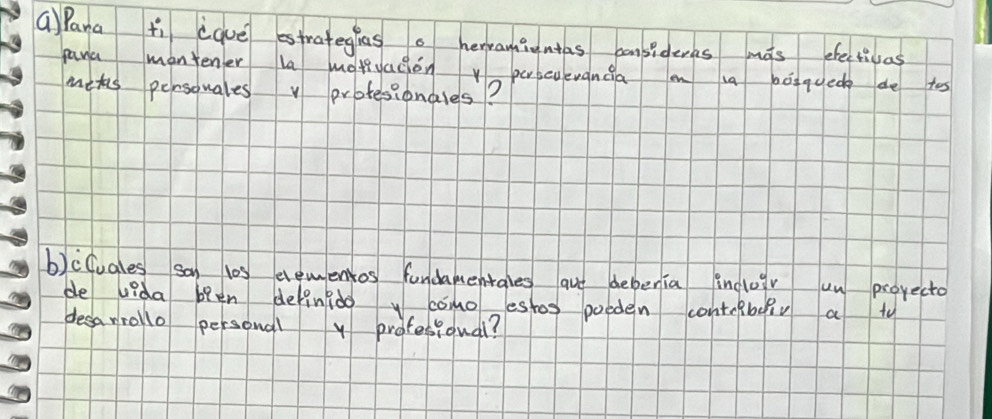 a) Para ti, ¿qué estrategias o herramientas consideras más efectivas
para mantener la motivación y perseverancia en la búsqueda de tus
metas personales y profesionales?
b) ¿Cuales son los elementos fundamentales que debería incluir un proyecto
de vida bien definido y cómo estos pueden contribuir a tu
desarrollo personal y profesional?